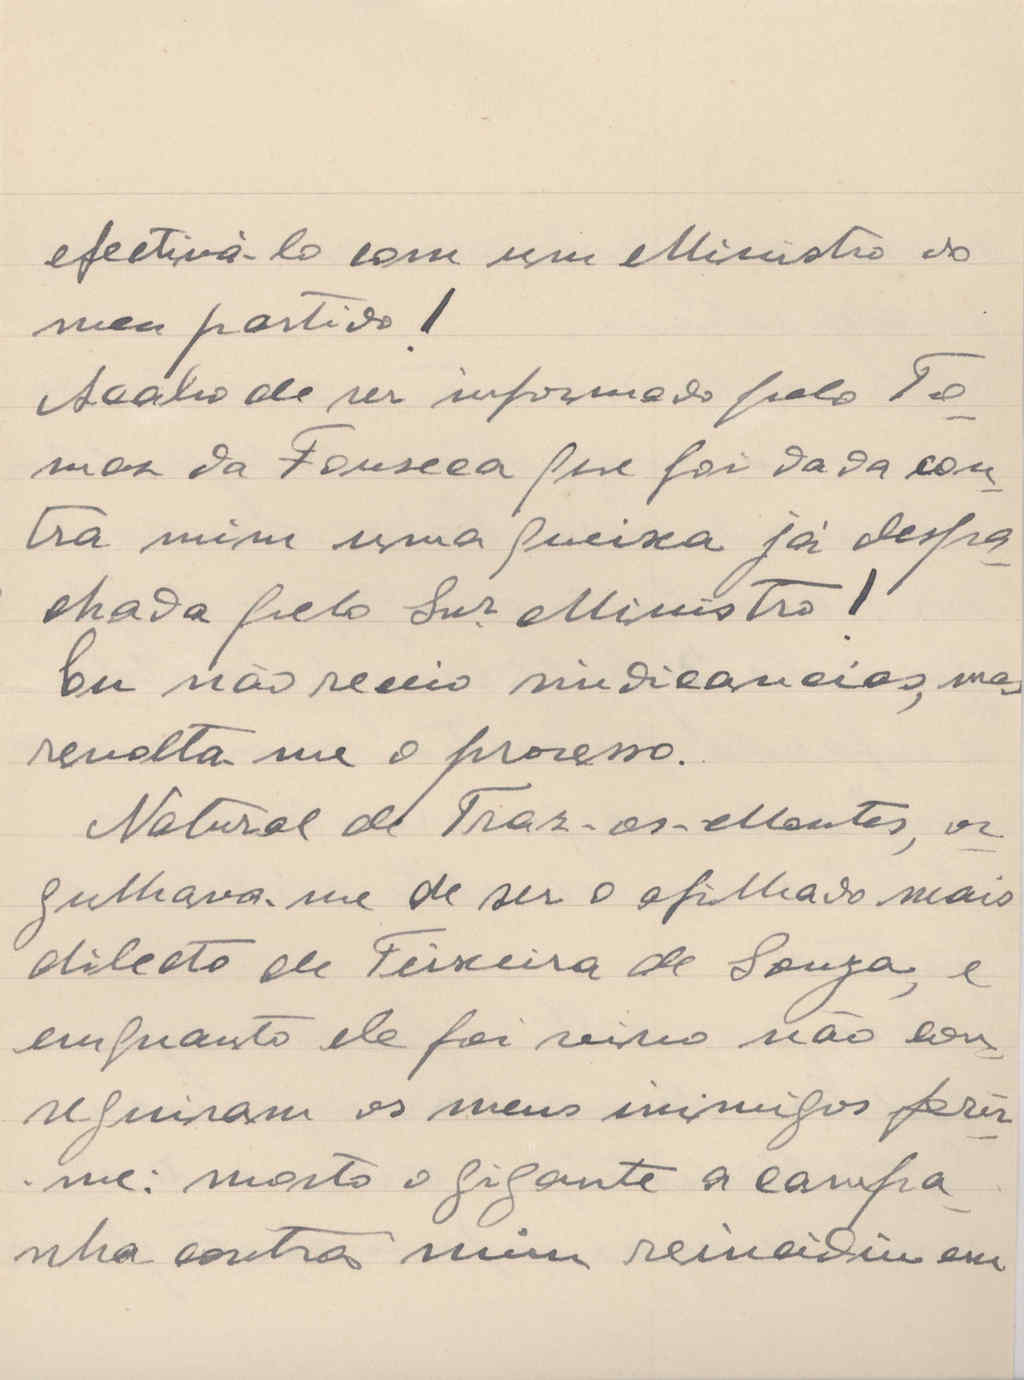 efectivá-lo com um Ministro do
meu partido!
Acabo de ser informado pelo To-
maz da Fonseca que foi dada con-
tra mim uma queixa já despa-
chada pelo Snr. Ministro!
Eu não receio sindicancias, mas
revolta-me o processo.
Natural de Traz-os-Montes, or-
gulhava-me de ser o afilhado mais
dilecto de Teixeira de Souza, e
emquanto ele foi vivo não con-
seguiram os meus inimigos ferir-
-me: morto o gigante a campa-
nha contra mim reincidiu em